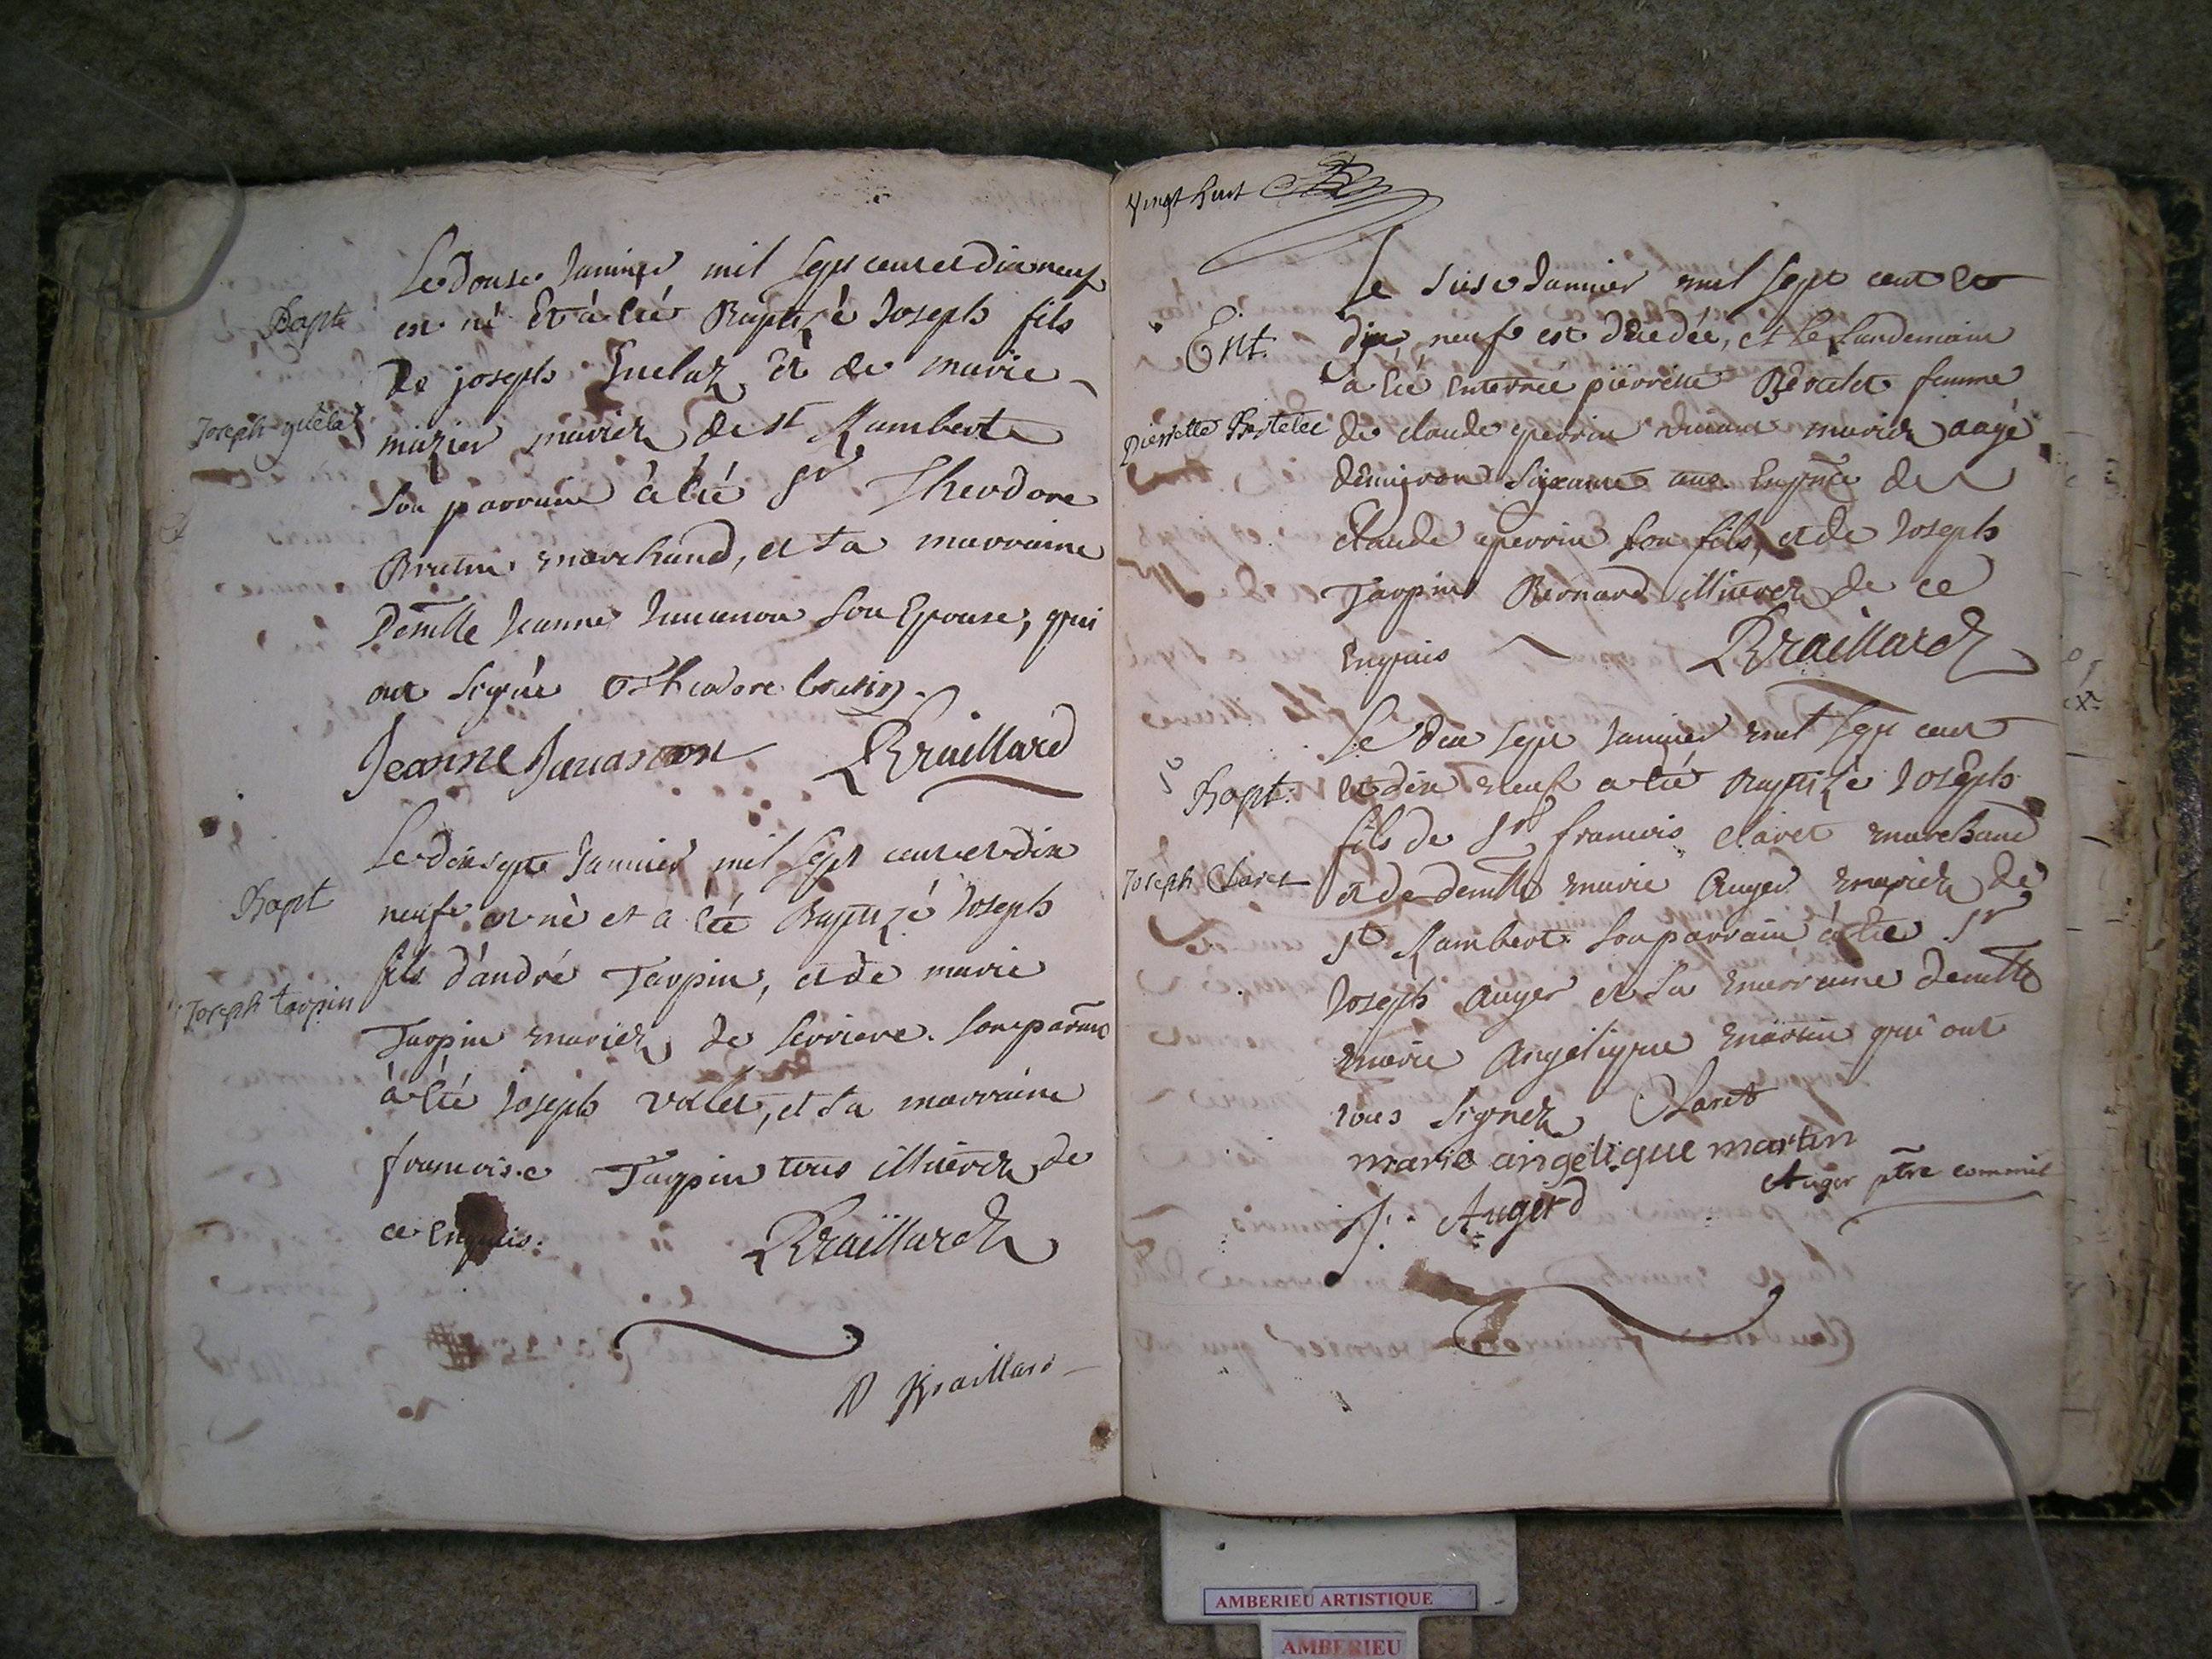 Bapt
Joseph guela
Le douse Janvier mil sept cent et dix neuf
est né Et à été Baptizé Joseph fils
De joseph Guelaz Et de marie
mazier mariez de st Rambert
Son parrain à été Sr Theodore
Brutin marchand, et sa marraine
Demlle Jeanne Janason Son Epouse, qui
ont signée Theodore brutin.
Jeanne Janason Braillard
Bapt
Joseph tarpin
Le dix sept Janvier mil sept cent et dix
neuf est né et a été Baptizé Joseph
fils d'andré Tarpin, et de marie
Tarpin mariez de Serriere. Son parain
à été Joseph valet, et sa marraine
francoise Tarpin tous illiterez de
ce Enquis.
Braillard
Braillard
Vingt huit
Ent.
Pierrette Bertelet
Le seise Janvier mil sept cent et
dix neuf est décédée, et le landemain
a été enterrée pierrette Bertelet femme
de claude perrin vivant mariez aagé
d'environ soixante ans. En pnce de
Claude perrin son fils, et de Joseph
Tarpin Bernard illiterez de ce
Enquis Braillard
Bapt.
Joseph Claret
Le dix sept Janvier mil sept cent
et dix neuf a été Baptizé Joseph
fils de Sr francois claret marchand
et de demlle marie Auger mariez de
St Rambert Son parrain à été Sr
Joseph auger et sa marraine demlle
marie Angelique martin qui ont
tous signez Claret
marie angelique martin
Auger ptre commis
J. Augerd
AMBERIEU ARTISTIQUE
AMBERIEU